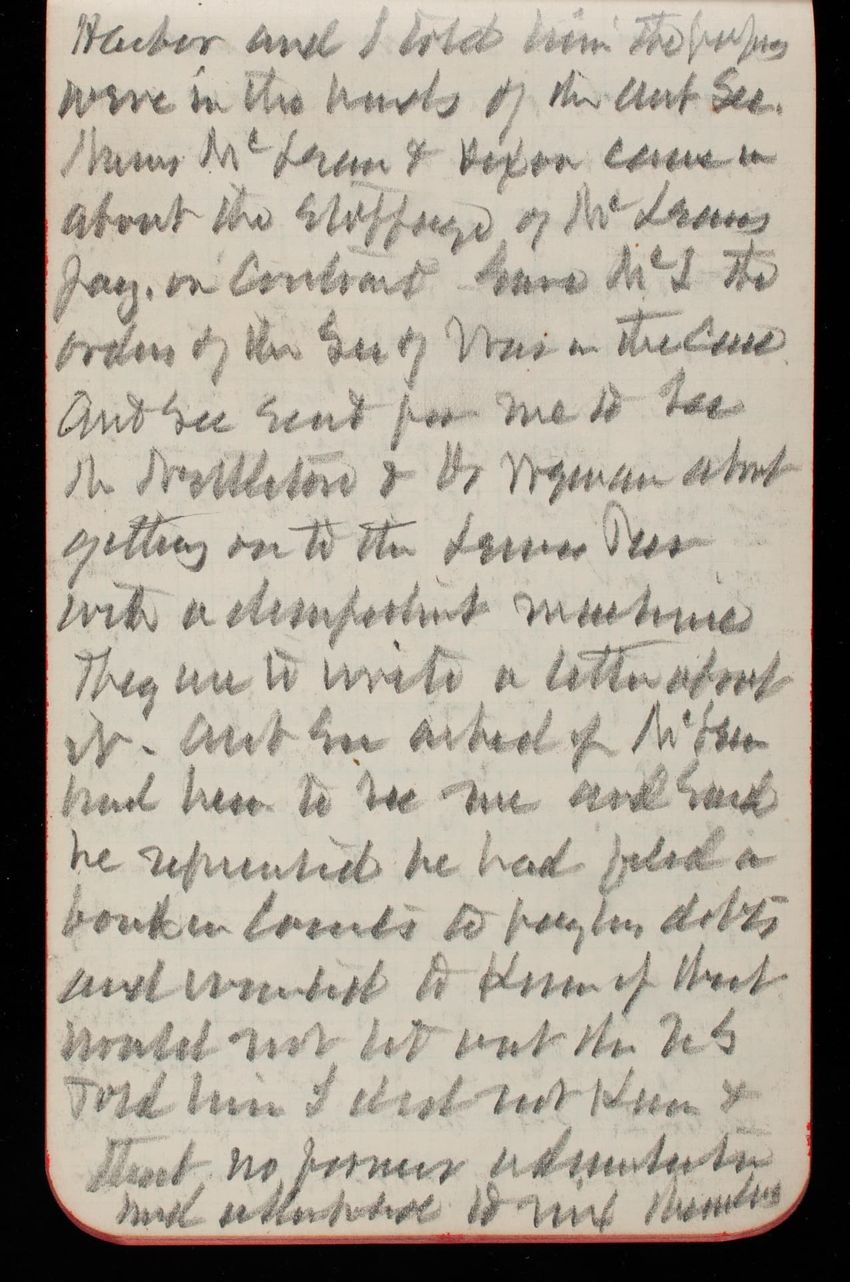 Harbor and I told him the papers
were in the hands of the Asst Sec.
Messrs McLean & Dixon came in
about the stoppage of McLeans
pay. on Contract Gave McL the
orders of the Sec of War in the Case
Asst Sec sent for me to see
Mr & Dr Wyman about
getting on to the
with a disinfectant machine
They are to write a letter about
it. Asst Sec asked if McLean
had been to see me and said
he represented he had filed a
bond in Courts to pay his debts
and wanted to know if that
would not let out the U S
Told him I did not Know &
that no former administration
had attempted to